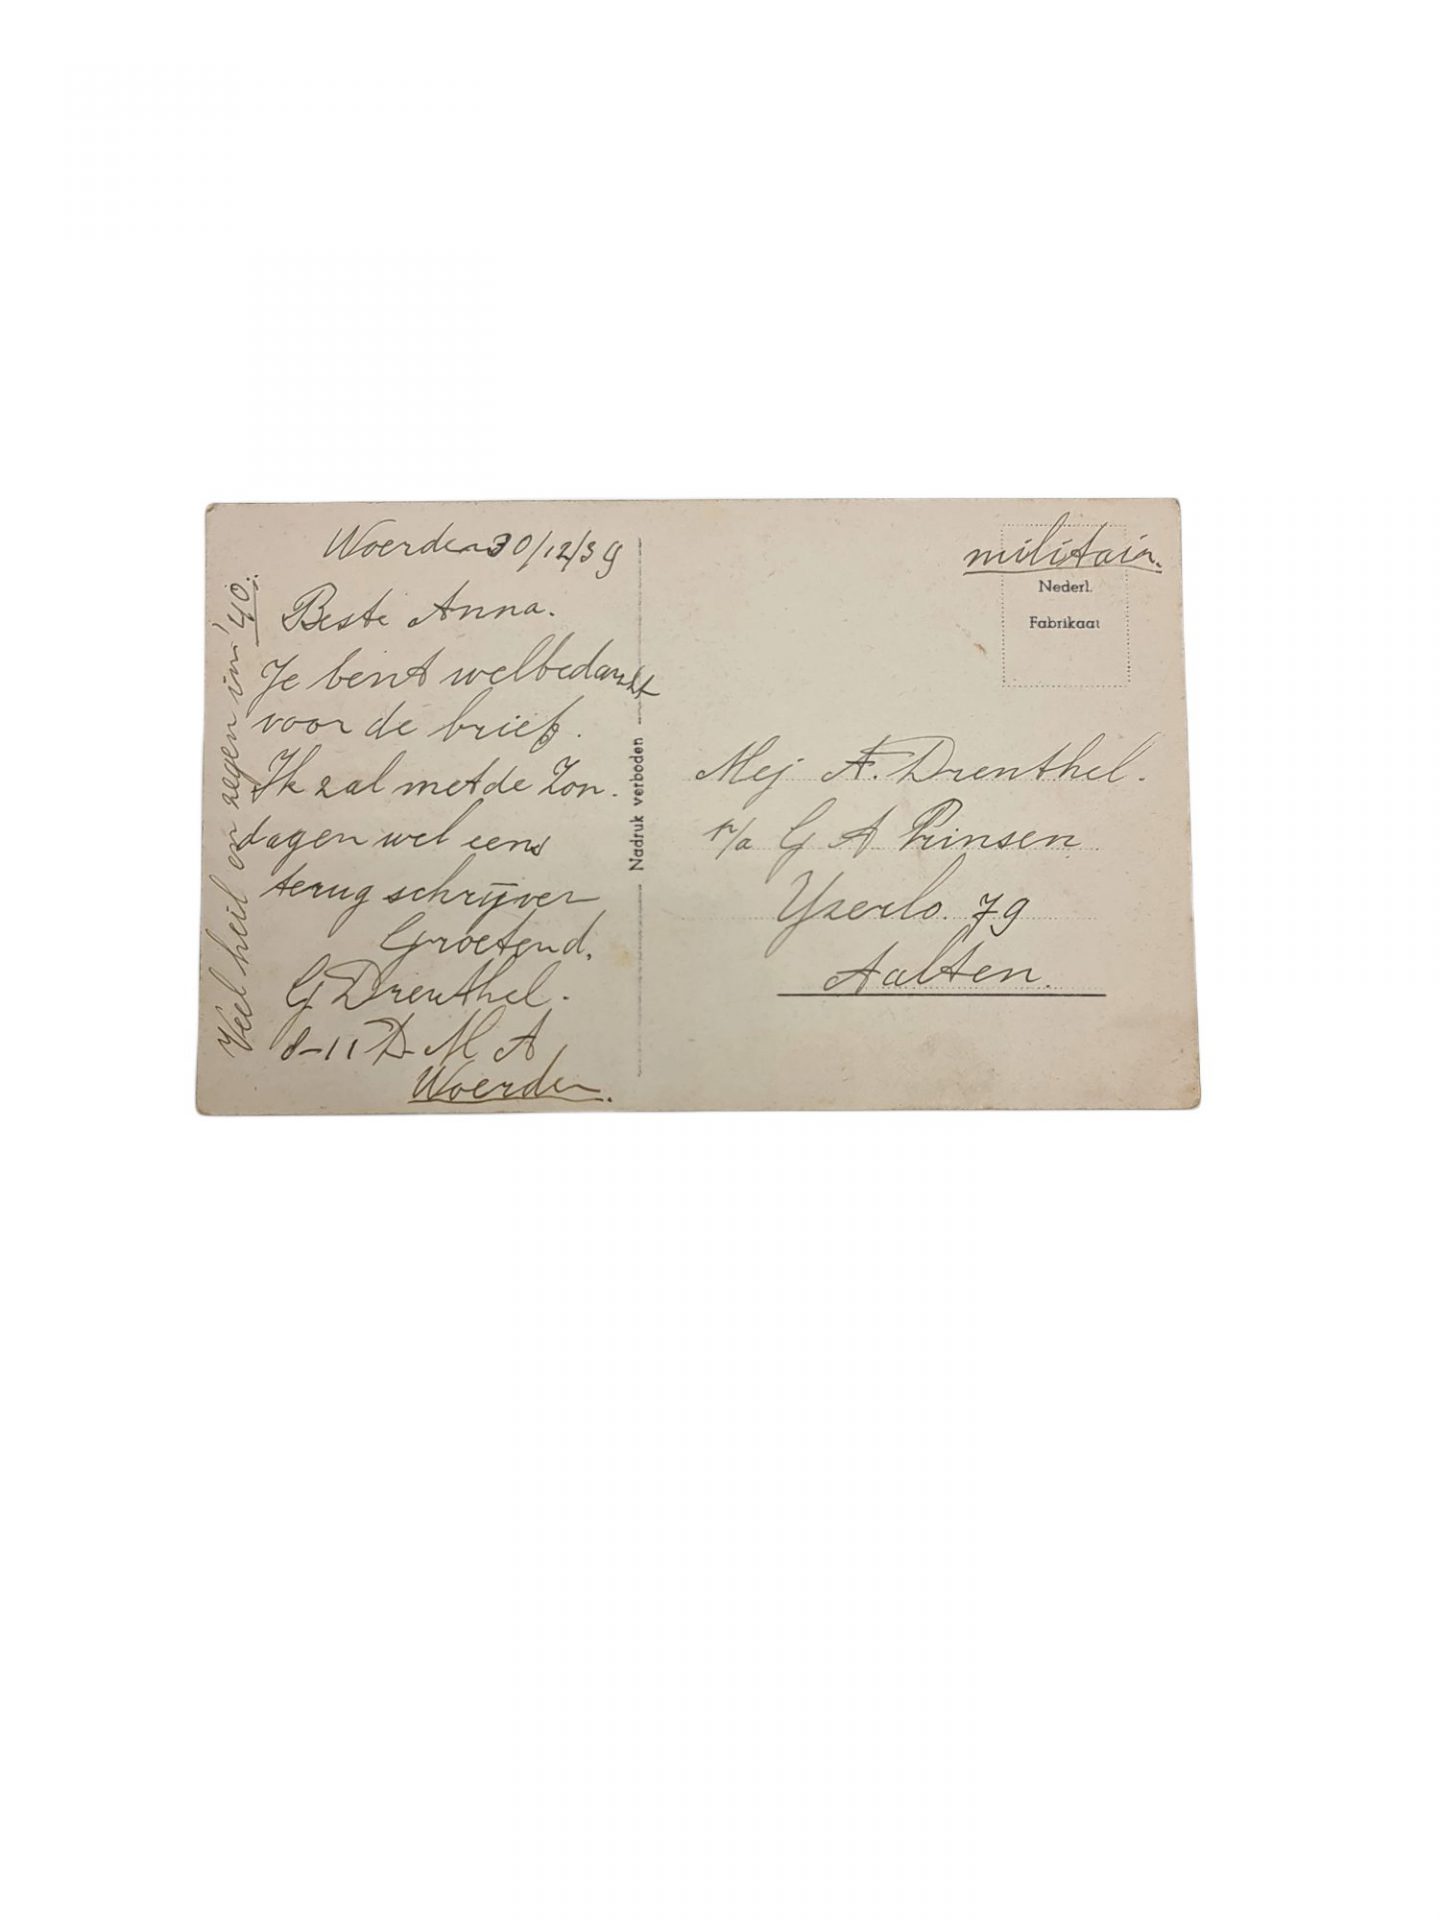 Woerden 30/12/39
Beste Anna.
Je bent welbedankt
voor de brief.
Ik zal met de Zon.
dagen wel eens
terug schrijven
Groetend.
G Drenthel.
8-11 D M A
Woerden.
Veel heil en zegen in '40.
Nadruk verboden
militair.
Nederl.
Fabrikaat
Mej A. Drenthel.
p/a G A Prinsen
Yzerlo. 79
Aalten.